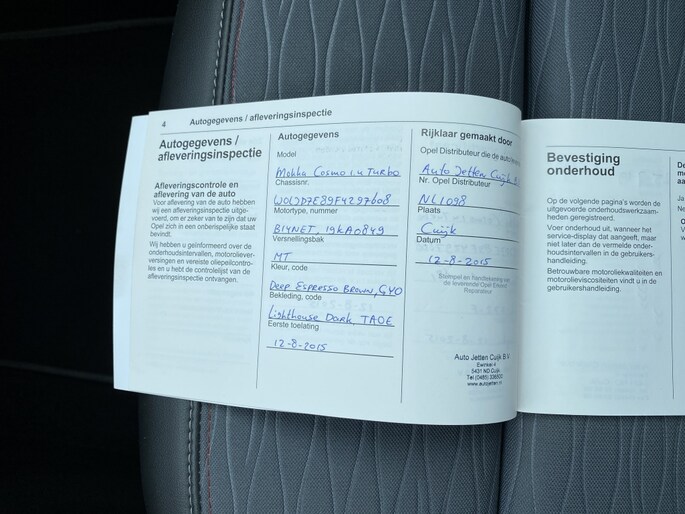 4
Autogegevens / afleveringsinspectie
Autogegevens /
afleveringsinspectie
Afleveringscontrole en
aflevering van de auto
Voor aflevering van de auto hebben
wij een afleveringsinspectie uitge-
voerd, om er zeker van te zijn dat uw
Opel zich in een onberispelijke staat
bevindt.
Wij hebben u geïnformeerd over de
onderhoudsintervallen, motoroliever-
versingen en vereiste oliepeilcontro-
les en u hebt de controlelijst van de
afleveringsinspectie ontvangen.
Autogegevens
Model
Mokka Cosmo 1.4 Turbo
Chassisnr.
Motortype, nummer
B14NET, 19KA0849
Versnellingsbak
MT
Kleur, code
Deep Espresso Brown, GYO
Bekleding, code
Lighthouse Dark, TAOE
Eerste toelating
12-8-2015
Rijklaar gemaakt door
Opel Distributeur die de auto
Auto Jetten Cuijk
Nr. Opel Distributeur
NL1098
Plaats
Cuijk
Datum
12-8-2015
Stempel en handtekening van
de leverende Opel Erkend
Reparateur
Auto Jetten Cuijk B.V.
Ewinkel 4
5431 ND Cuijk
www.autojetten.nl
Bevestiging
onderhoud
Op de volgende pagina's worden de
uitgevoerde onderhoudswerkzaam-
heden geregistreerd.
Voer onderhoud uit, wanneer het
service-display dat aangeeft, maar
niet later dan de vermelde onder-
houdsintervallen in de gebruikers-
handleiding.
Betrouwbare motoroliekwaliteiten en
motorolieviscositeiten vindt u in de
gebruikershandleiding.